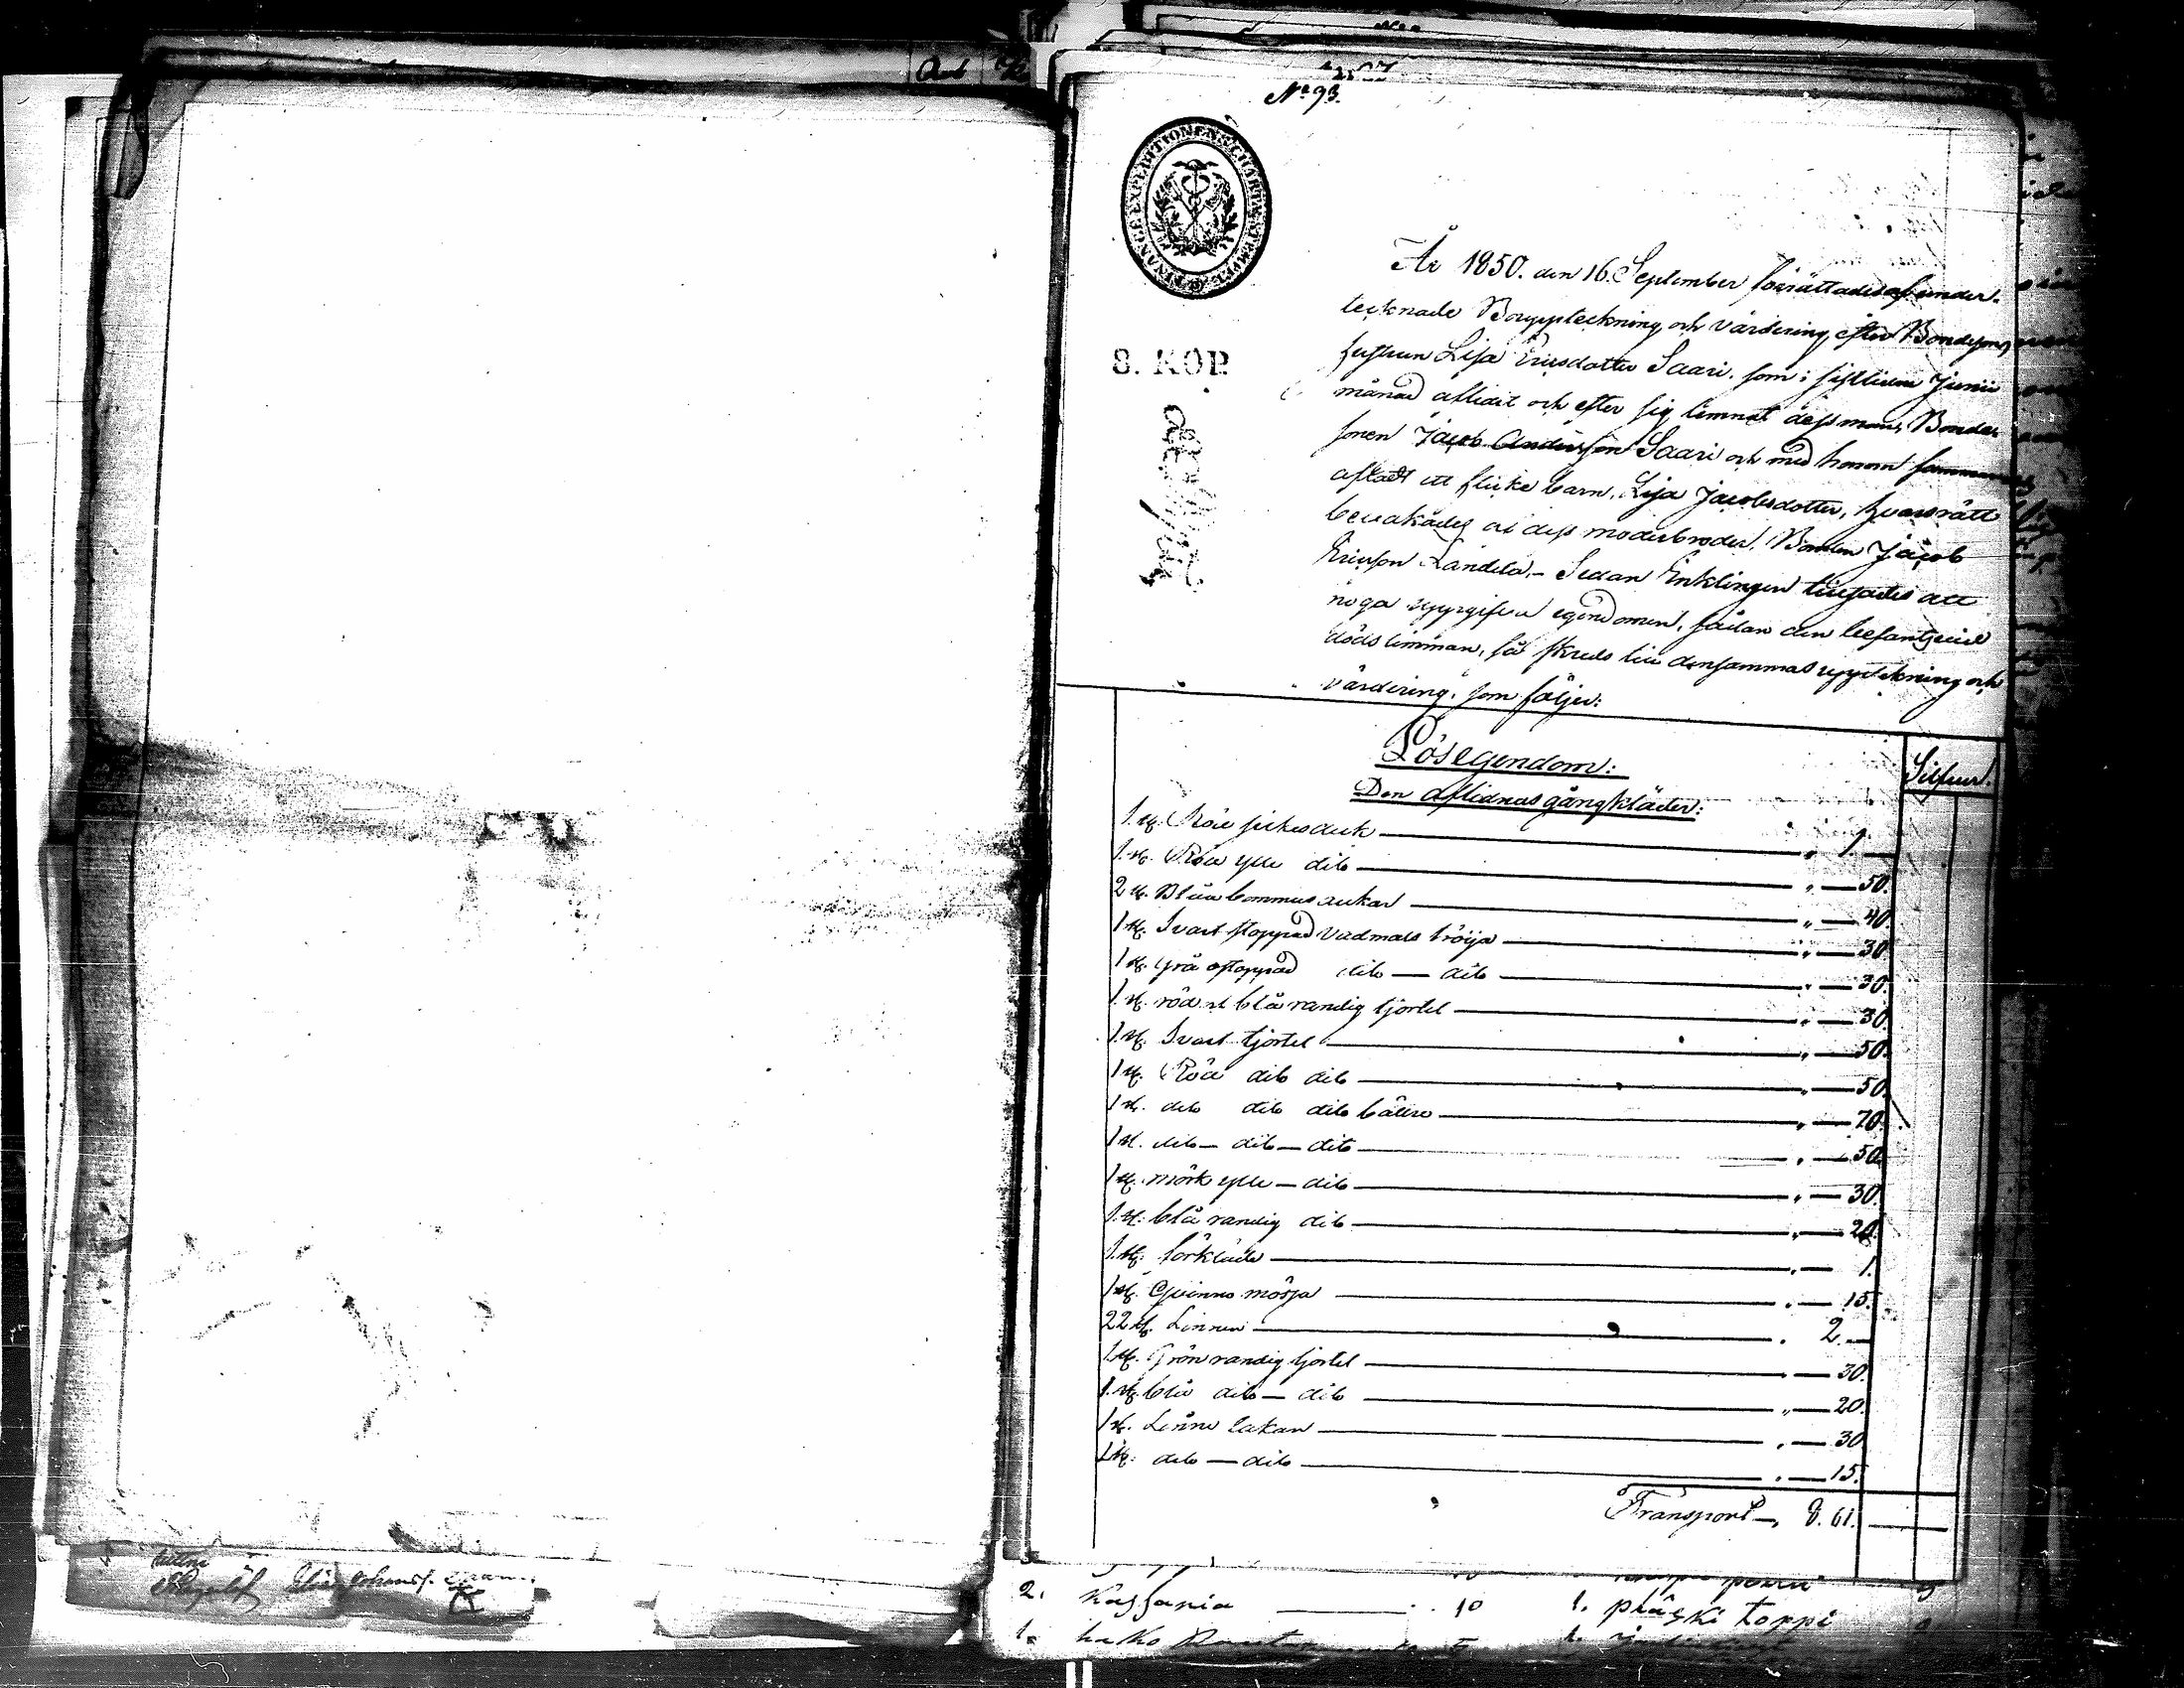 Nº 93.
FINANCE EXPEDITIONENS CHARTÆ STEMPEL
8. KOP.
År 1850. den 16. September förrättades af under-
tecknade Bouppteckning och värdering efter Bondesons
hustrun Lisa Ericsdotter Saari, som i sistliden Junii
månad aflidit och efter sig lemnat dess man, Bonde-
sonen Jacob Andersson Saari och med honom sammanaf-
afladt ett flicke barn, Lisa Jacobsdotter, hvars rätt
bevakades af dess moderbroder, Bonden Jacob
Ericsson Kandela. - Sedan Enklingen tillsades att
noga uppgifva egendomen, sådan den befants vid
dödstimman, så skreds till densammas uppteckning och
värdering, som följer:
Silfver.
Lösegendom:
Den aflidnas gångkläder:
1 st. Röd silkesduk — " 1. —
1. st. Röd ylle dito — " — 50.
2 st. Blåa bommusdukar — " — 40.
1 st. Svart stoppad vadmals tröija — " — 30.
1 st. grå ostoppad dito — dito — " — 30.
1. st. röd och blårandig kjortel — " — 30.
1. st. Svart kjortel — " — 50.
1 st. Röd dito dito — " — 50.
1 st. dito dito dito bättre — " — 70.
1 st. dito — dito — dito — " — 50.
1 st. mörk ylle — dito — " — 30.
1. st. blå randig dito — " — 20.
1. st. förkläde — " — 1.
1 st. Qvinno mössa — " — 15.
22 st. Linnen — " 2. —
1. st. Grön randig kjortel — " — 30.
1. st. blå dito — dito — " — 20.
1 st. Linne lakan — " — 30.
1 st. dito — dito — " — 15.
Transport —, 8. 61. —
2. Kassaria — 10 1. präski toppi